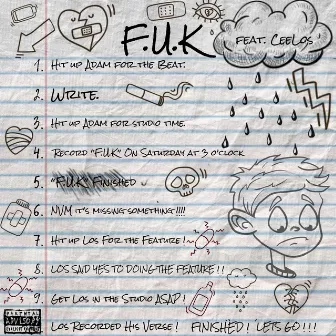 F.U.K
FEAT. CEELOS
1. HIT UP ADAM FOR THE BEAT.
2. WRITE.
3. HIT UP ADAM FOR STUDIO TIME.
4. RECORD "F.U.K" ON SATURDAY AT 3 O'CLOCK
5. "F.U.K" FINISHED
6. NVM IT'S MISSING SOMETHING!!!!
7. HIT UP LOS FOR THE FEATURE!
8. LOS SAID YES TO DOING THE FEATURE!!
9. GET LOS IN THE STUDIO ASAP!
LOS RECORDED HIS VERSE! FINISHED! LETS GO!!!
PARENTAL
ADVISORY
EXPLICIT CONTENT